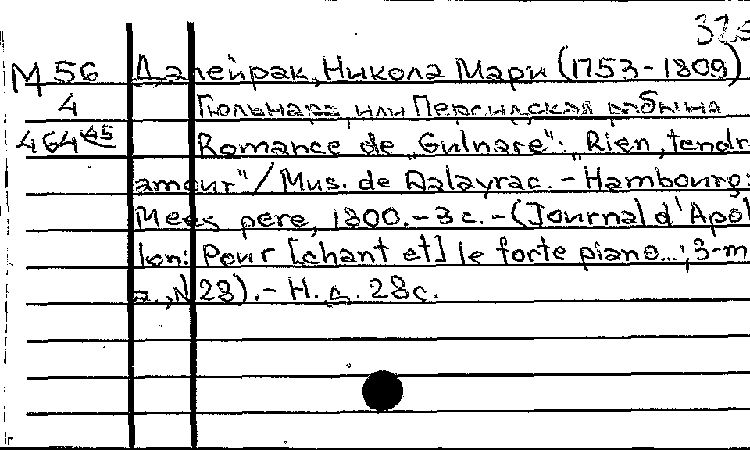 М 56 Далейрак, Никола Мари (1753-1809)
4 Гюльнара, или Персидская рабыня
464 45 Romance de „Gulnare": „Rien, tendr
amour"/Mus. de Dalayrac. - Hambourg:
Mees pere, 1800. - 3 с. - (Journal d'Apol
lon: Pour [chant et] le forte piano...; 3-m
a., N 28). - Н. д. 28 с.